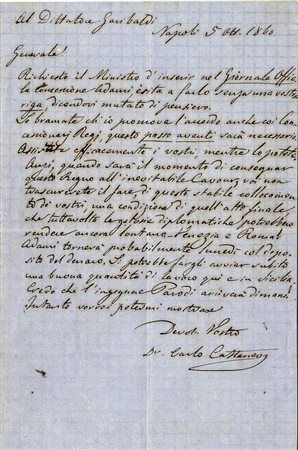 Al Dittatore Garibaldi
Napoli 5 Ott. 1860
Generale!
Richiesto il Ministro d'inserir nel Giornale Offic.
la concessione Adami, esita a farlo senza una vostra
riga dicendovi mutato di pensiero.
Se bramate ch'io promova l'accordo anche coi Con-
cessionarj Regj, questi passo avanti sarà necessario
efficacemente i vostri, mentre lo potete
Anzi, quando sarà il momento di consegnar
questo Regno all'inevitabile Cavour, voi non
trascurerete il fare di questo stabile collocamen-
to dei vostri, una condizione di quell'atto finale,
che tuttavolta le gelosie diplomatiche potrebbero
rendere ancora lontano. Venezia e Roma!
Adami tornerà probabilmente lunedì col depo-
sito del denaro. Si potrebbe fargli avviar subito
una buona quantità di lavoro qui e in Sicilia.
Credo che l'ingegnere Parodi arriverà dimani.
Intanto vorrei potermi mostrare
Devot. Vostro
Dr. Carlo Cattaneo